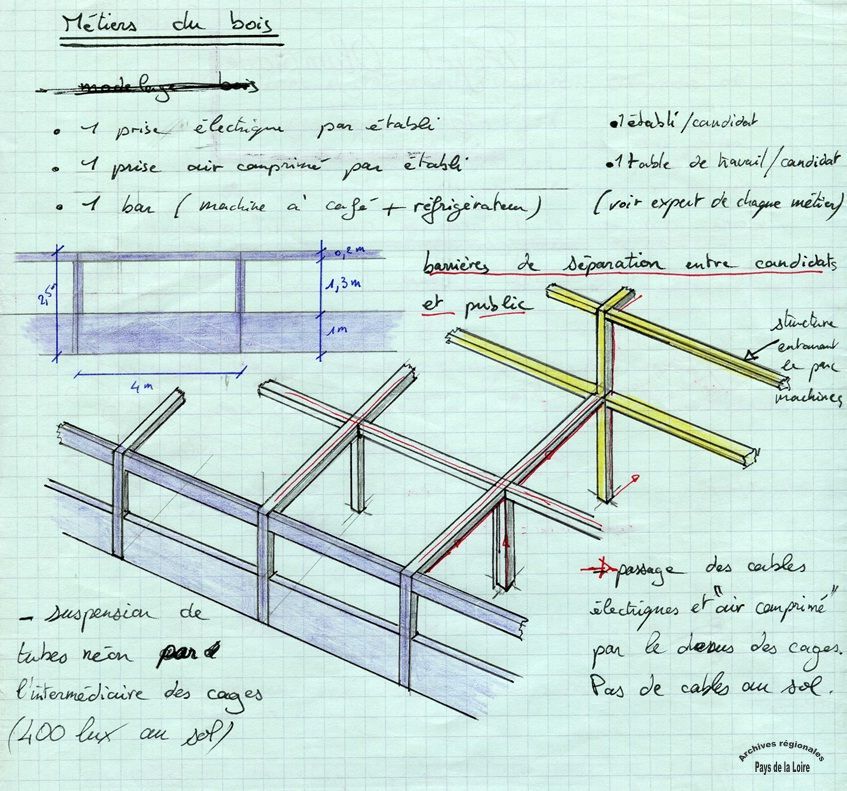 Métiers du bois
modelage bois
• 1 prise électrique par établi
• 1 prise air comprimé par établi
• 1 bar (machine à café + réfrigérateur)
• 1 établi/candidat
• 1 table de travail/candidat
(voir expert de chaque métier)
barrières de séparation entre candidats
et public
0,2 m
1,3 m
1m
2,5m
4 m
structure
entourant
le parc
machines
→ passage des cables
électriques et "air comprimé"
par le dessus des cages.
Pas de cables au sol.
- suspension de
tubes néon par
l'intermédiaire des cages
(400 lux au sol)
Archives régionales
Pays de la Loire